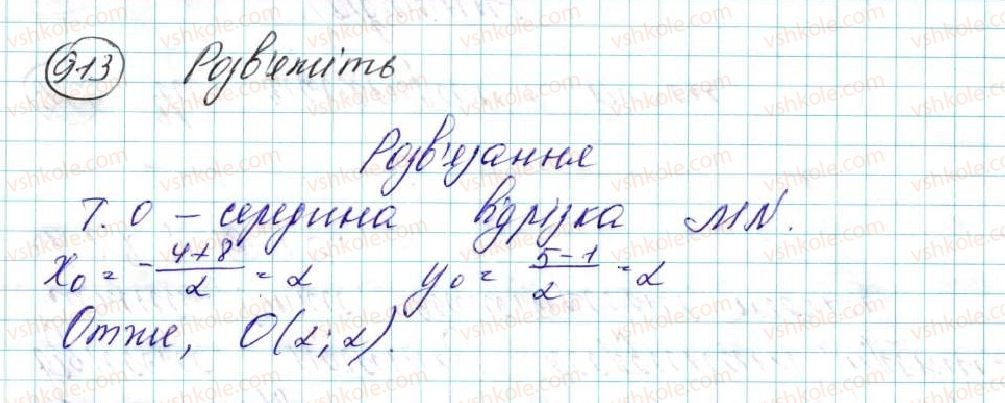 913 Розв'яжіть
Розв'язання
Т. О – середина відрізка MN.
x₀ = -4+8/2 = 2 y₀ = 5-1/2 = 2
Отже, О(2; 2).